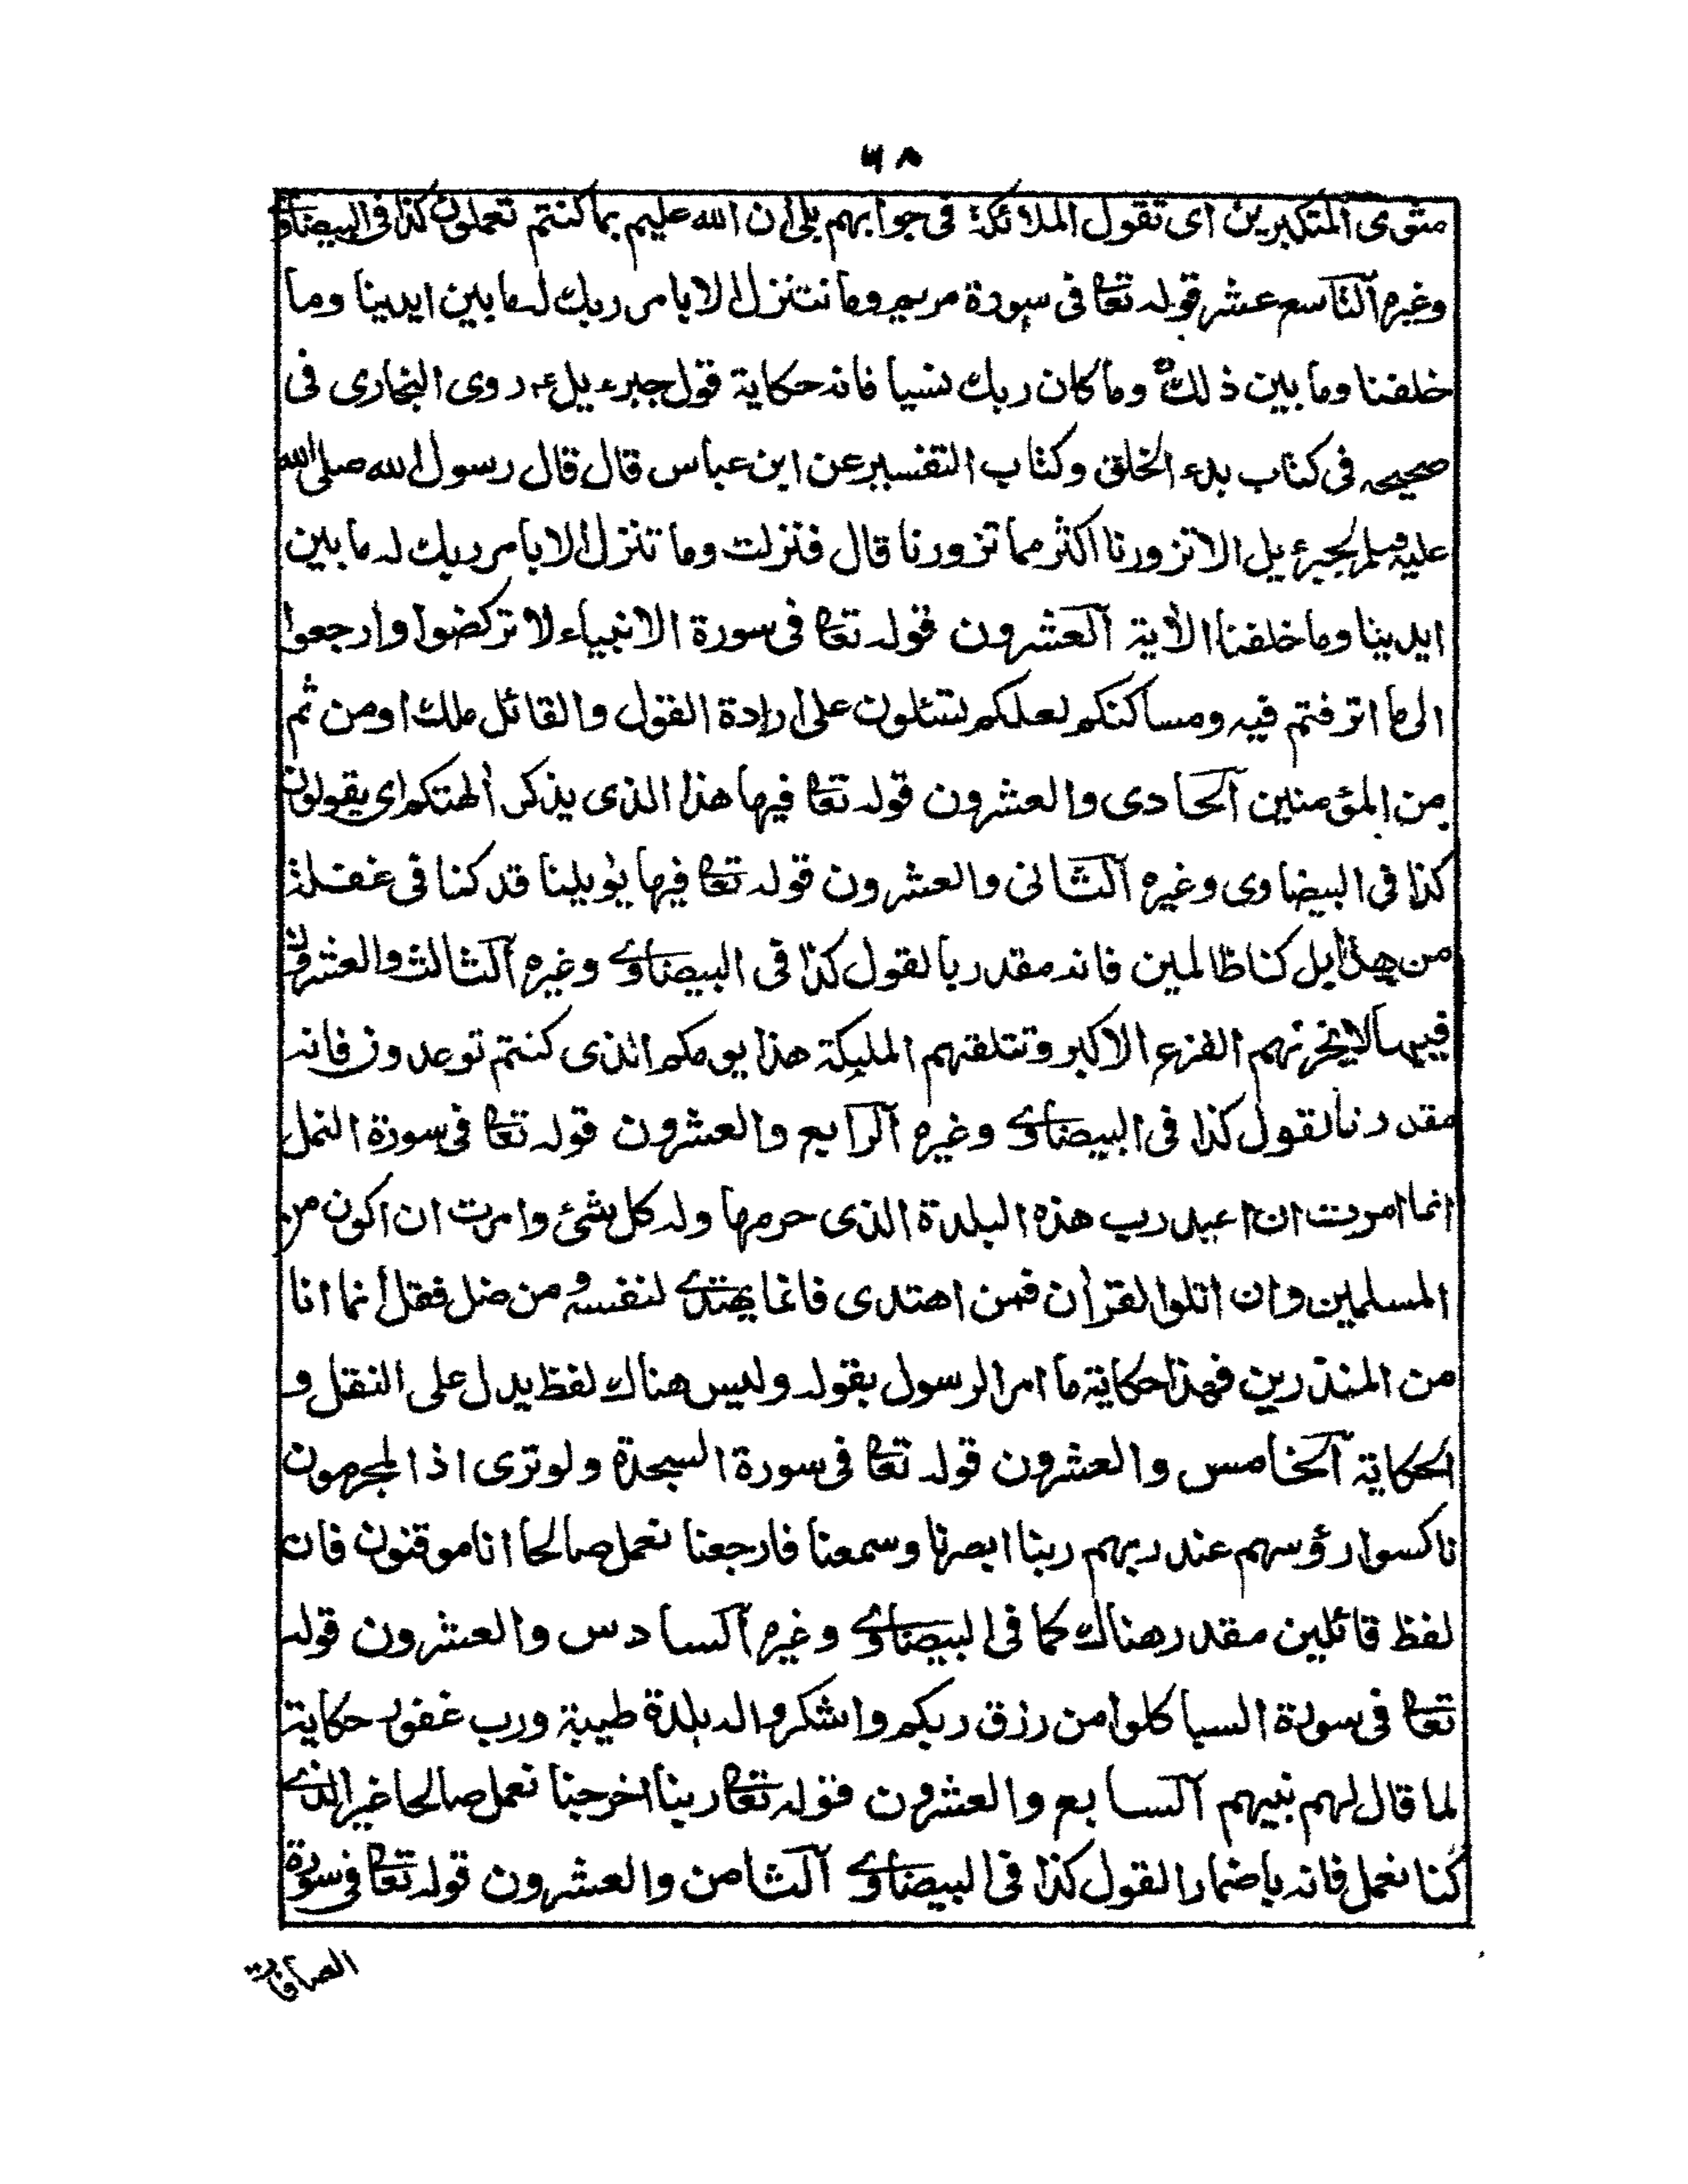 ٦٨
مثوى المتكبرين اى تقول الملائكة فى جوابهم بلى ان الله عليم بما كنتم تعملون كذا فى البيضاوى
وغيره التاسع عشر قوله تعا فى سورة مريم وما نتنزل الا بامر ربك له ما بين ايدينا وما
خلفنا وما بين ذلك وما كان ربك نسيا فانه حكاية قول جبرءيل ع روى البخارى فى
صحيحه فى كتاب بدء الخلق وكتاب التفسير عن ابن عباس قال قال رسول الله صلى الله
عليه وسلم لجبرئيل الا تزورنا اكثر مما تزورنا قال فنزلت وما تنزل الا بامر ربك له ما بين
ايدينا وما خلفنا الأية العشرون قوله تعا فى سورة الانبياء لا تركضوا وارجعوا
الى ما اترفتم فيه ومساكنكم لعلكم تسئلون على ارادة القول والقائل ملك او من ثم
من المؤمنين الحادى والعشرون قوله تعا فيها هذا الذى يذكر ألهتكم اى يقولون
كذا فى البيضاوى وغيره الثانى والعشرون قوله تعا فيها يٰويلنا قد كنا فى غفلة
من هذا بل كنا ظالمين فانه مقدر بالقول كذا فى البيضاوى وغيره الثالث والعشرون
فيها لا يحزنهم الفزع الاكبر وتتلقهم المليكة هذا يومكم الذى كنتم توعدون فانه
مقدر بالقول كذا فى البيضاوى وغيره الرابع والعشرون قوله تعا فى سورة النمل
انما امرت ان اعبد رب هذه البلدة الذى حرمها وله كل شئ وامرت ان اكون من
المسلمين وان اتلوا القرأن فمن اهتدى فانما يهتدى لنفسه ومن ضل فقل انما انا
من المنذرين فهذا حكاية ما امر الرسول بقوله وليس هناك لفظ يدل على النقل و
الحكاية الخامس والعشرون قوله تعا فى سورة السجدة ولو ترى اذ المجرمون
ناكسوا رؤسهم عند ربهم ربنا ابصرنا وسمعنا فارجعنا نعمل صالحا انا موقنون فان
لفظ قائلين مقدر هناك كما فى البيضاوى وغيره السادس والعشرون قوله
تعا فى سورة السبا كلوا من رزق ربكم واشكروا له بلدة طيبة ورب غفور حكاية
لما قال لهم نبيهم السابع والعشرون قوله تعا ربنا اخرجنا نعمل صالحا غير الذى
كنا نعمل فانه باضمار القول كذا فى البيضاوى الثامن والعشرون قوله تعا فى سورة
الصافات